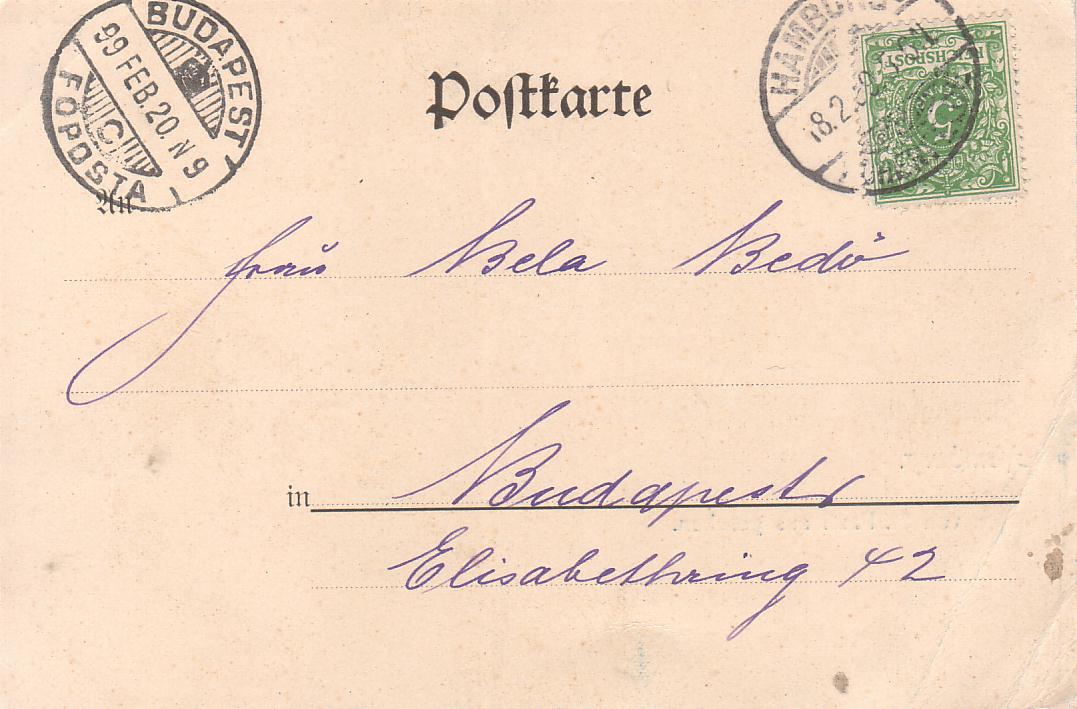 BUDAPEST
99 FEB. 20. N 9
C
FŐPOSTA
Postkarte
HAMBURG
18.2.99
REICHSPOST
5
An
Frau Bela Bedö
in Budapest
Elisabethring 42